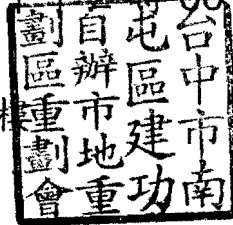 台中市南
屯區建功
自辦市地重
劃區重劃會
樓